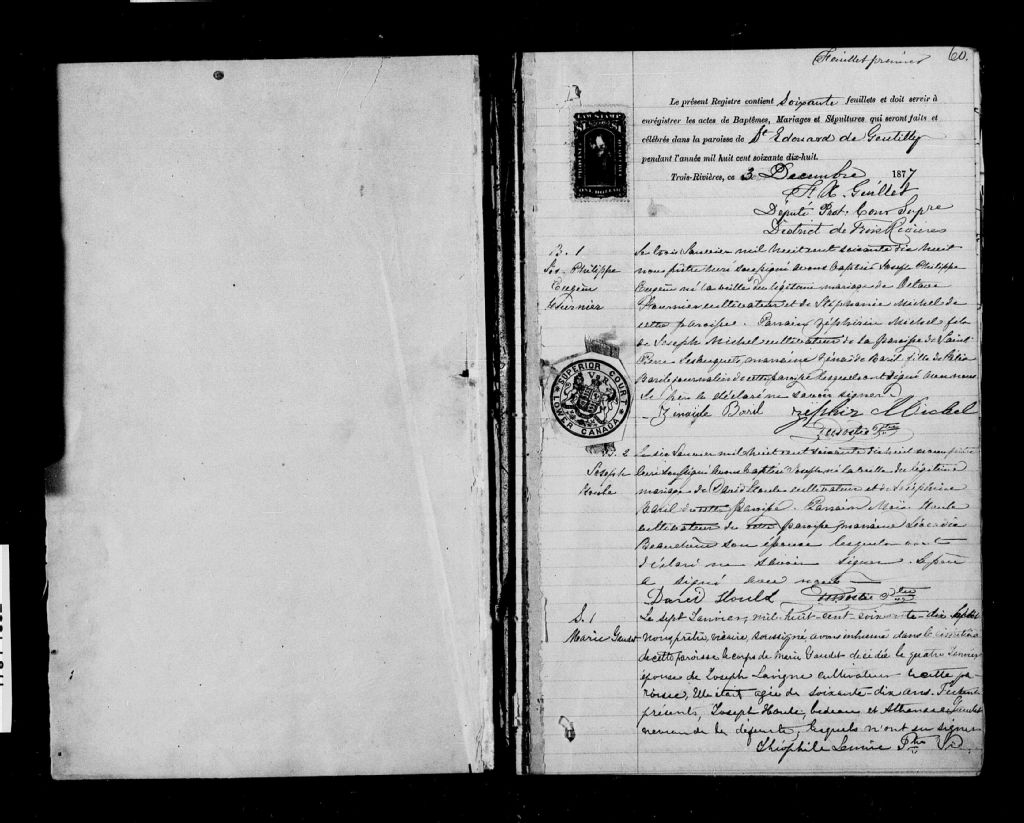 Feuillet premier
60.
Le présent Registre contient Soixante feuillets et doit servir à
enrégistrer les actes de Baptêmes, Mariages et Sépultures qui seront faits et
célébrés dans la paroisse de St Edouard de Gentilly
pendant l'année mil huit cent soixante dix-huit.
Trois-Rivières, ce 3 Decembre 1877
Guillet
Député Prot. Cour Supre
District de Trois Rivières
LAW STAMP
ONE DOLLAR
B. 1
Jos. Philippe
Eugène
Fournier
Le trois Janvier mil huit cent soixante dix huit
nous prêtre curé soussigné avons baptisé Joseph Philippe
Eugène né la veille du légitime mariage de Octave
Fournier cultivateur et de Stéphanie Michel de
cette paroisse. Parrain Zéphirin Michel fils
de Joseph Michel cultivateur de la paroisse de Saint
Pierre les Becquets, marraine Baril fille de
Baril journalier de cette paroisse lesquels ont signé avec nous.
Le père a déclaré ne savoir signer.
Baril Zéphir Michel
Ptre
SUPERIOR COURT
LOWER CANADA
V R
B. 2
Joseph
Houle
Le six Janvier mil huit cent soixante dix huit nous prêtre
curé soussigné avons baptisé Joseph né la veille du légitime
mariage de David Houle cultivateur et de Joséphine
Baril de cette paroisse. Parrain Houle
cultivateur de cette paroisse marraine
Beaudoin son épouse lesquels ont
déclaré ne savoir signer. Le père
a signé avec nous
David Hould Ptre
S. 1
Marie Gaudet
Le sept Janvier, mil-huit-cent-soixante-dix
nous prêtre, vicaire, soussigné, avons inhumé dans le cimetière
de cette paroisse le corps de Marie Gaudet décédée le quatre Janvier
épouse de Joseph Lavigne cultivateur de cette pa-
roisse, Elle était agée de soixante-dix ans. Furent
présents, Joseph Houle, bedeau et Athanase Gaudet
neveu de la défunte, lesquels n'ont su signer
Théophile Ptre Vic.